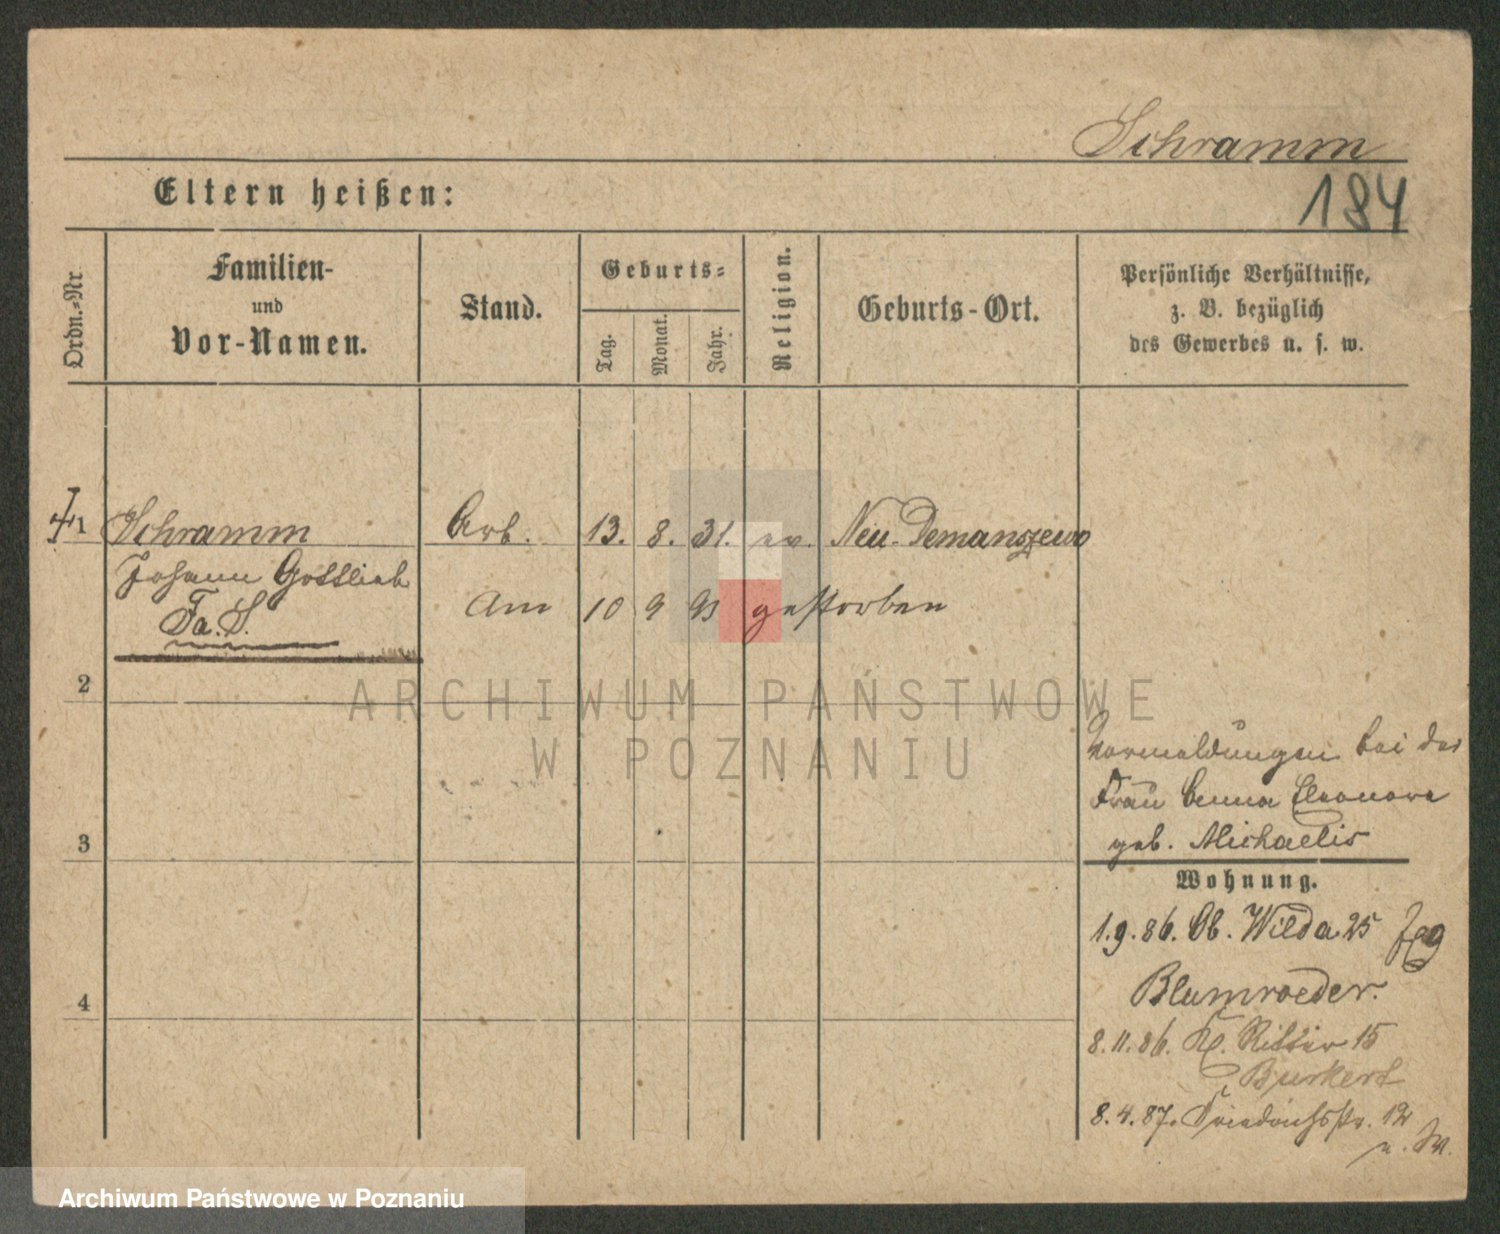 Schramm
184
Eltern heißen:
Ordn.-Nr
Familien-
und
Vor-Namen.
Stand.
Geburts-
Tag.
Monat.
Jahr.
Religion.
Geburts-Ort.
Persönliche Verhältnisse,
z. B. bezüglich
des Gewerbes u. s. w.
1 Schramm Arb. 13. 8. 31. ev. Neu-Demanszewo
Johann Gottlieb
Fa. S.
Am 10 9 93 gestorben
2
3
4
Vormeldungen bei der
Frau Eleonore
geb. Michaelis
Wohnung.
1.9.86. Ob. Wilda 25
Blumroeder.
8.11.86. Kl. Ritter 15
Burkert
8.4.87. Friedrichsstr. 12
ARCHIWUM PAŃSTWOWE
W POZNANIU
Archiwum Państwowe w Poznaniu